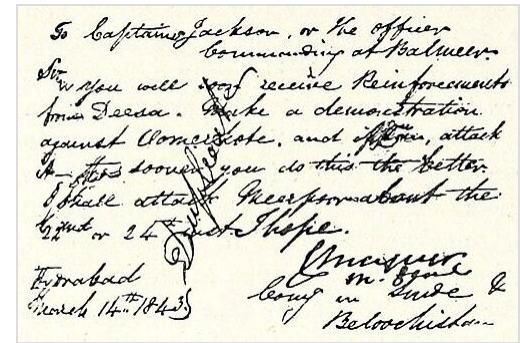 To Captain Jackson, or the officer
Commanding at Balmeer.
Sir, you will soon receive Reinforcements
from Deesa. Make a demonstration
against Omercote, and if you can, attack
it – the sooner you do this the better.
I shall attack Meerpoor about the
22nd or 24th inst I hope.
C Napier
M. Genl
Comg in Sinde &
Beloochistan
Hydrabad
March 14th 1843